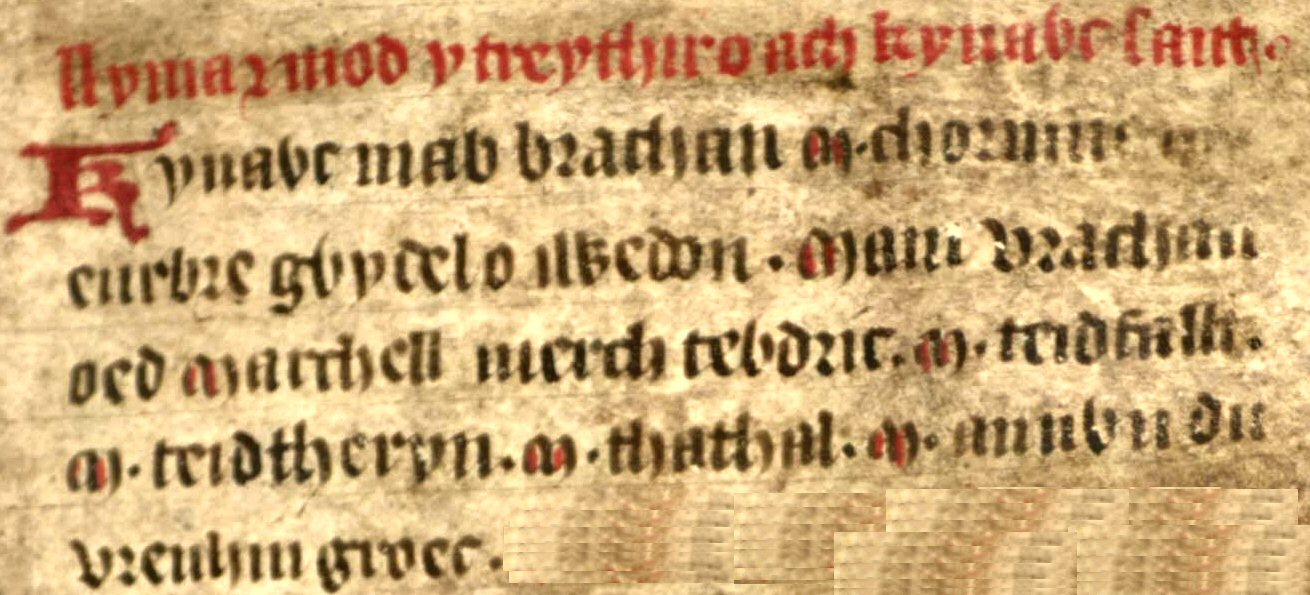 llyma armod y treythir o ach kynavc sant.
Kynavc mab brachan m. chormuc
eurbre gvydel o iwedon. Mam vrachan
oed marchell merch tevdric. m. teidfallt.
m. teidtheryn. m. thathal. m. annvn du
vrenhin groec.